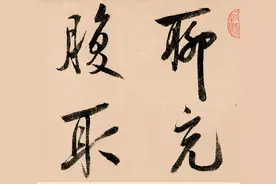 聊充
腹耳